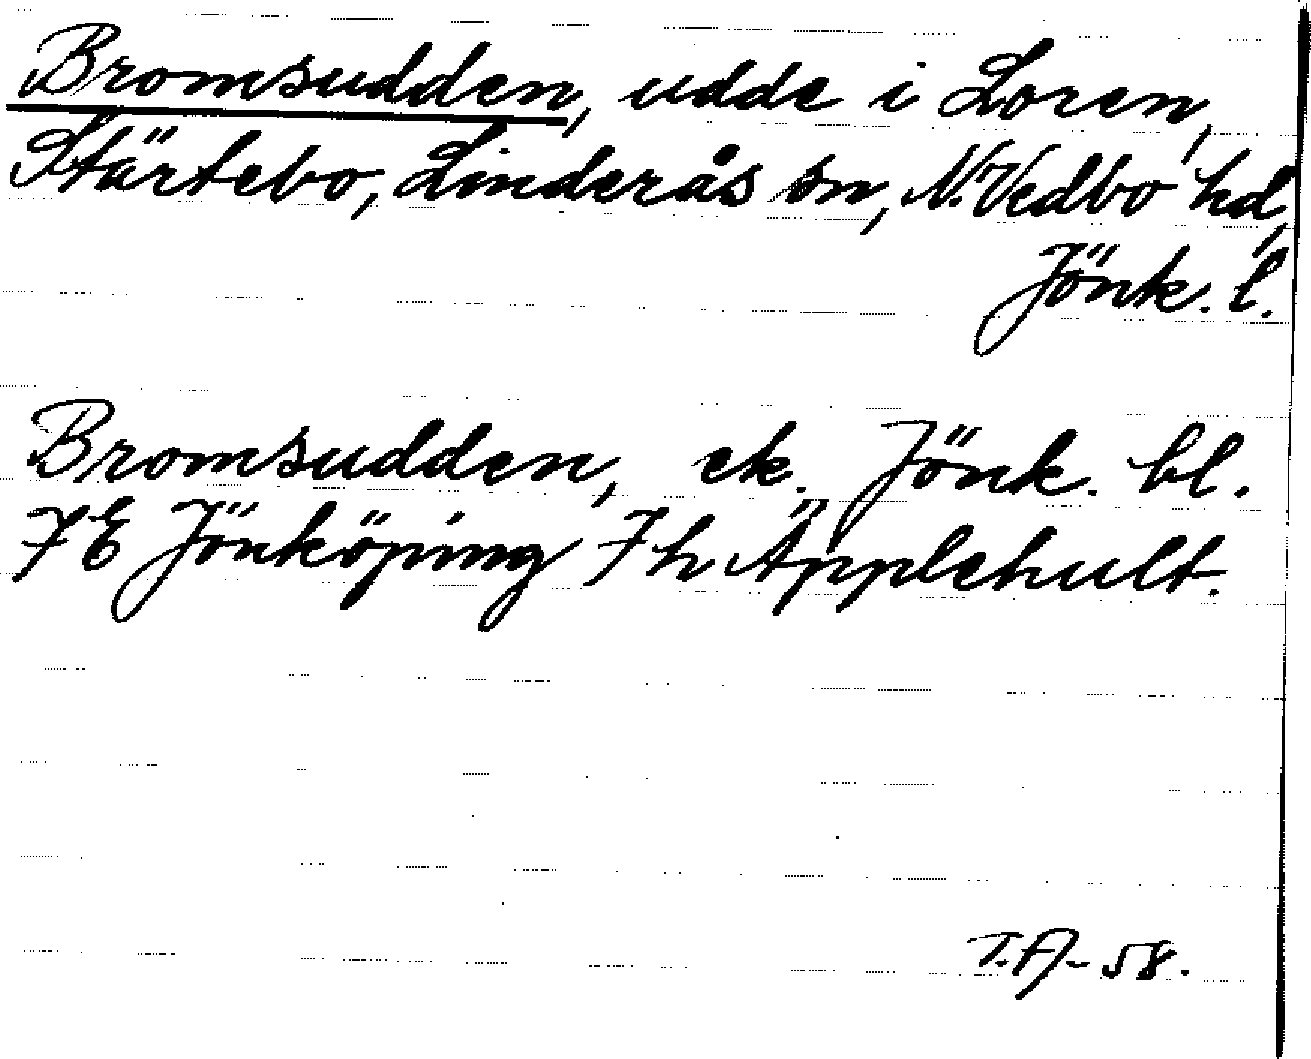 Bromsudden, udde i Loren,
Stärtebo, Linderås sn, N. Vedbo hd,
Jönk. l.
Bromsudden, ek. Jönk. bl.
7 E Jönköping 7 h Äpplehult.
T.A-58.